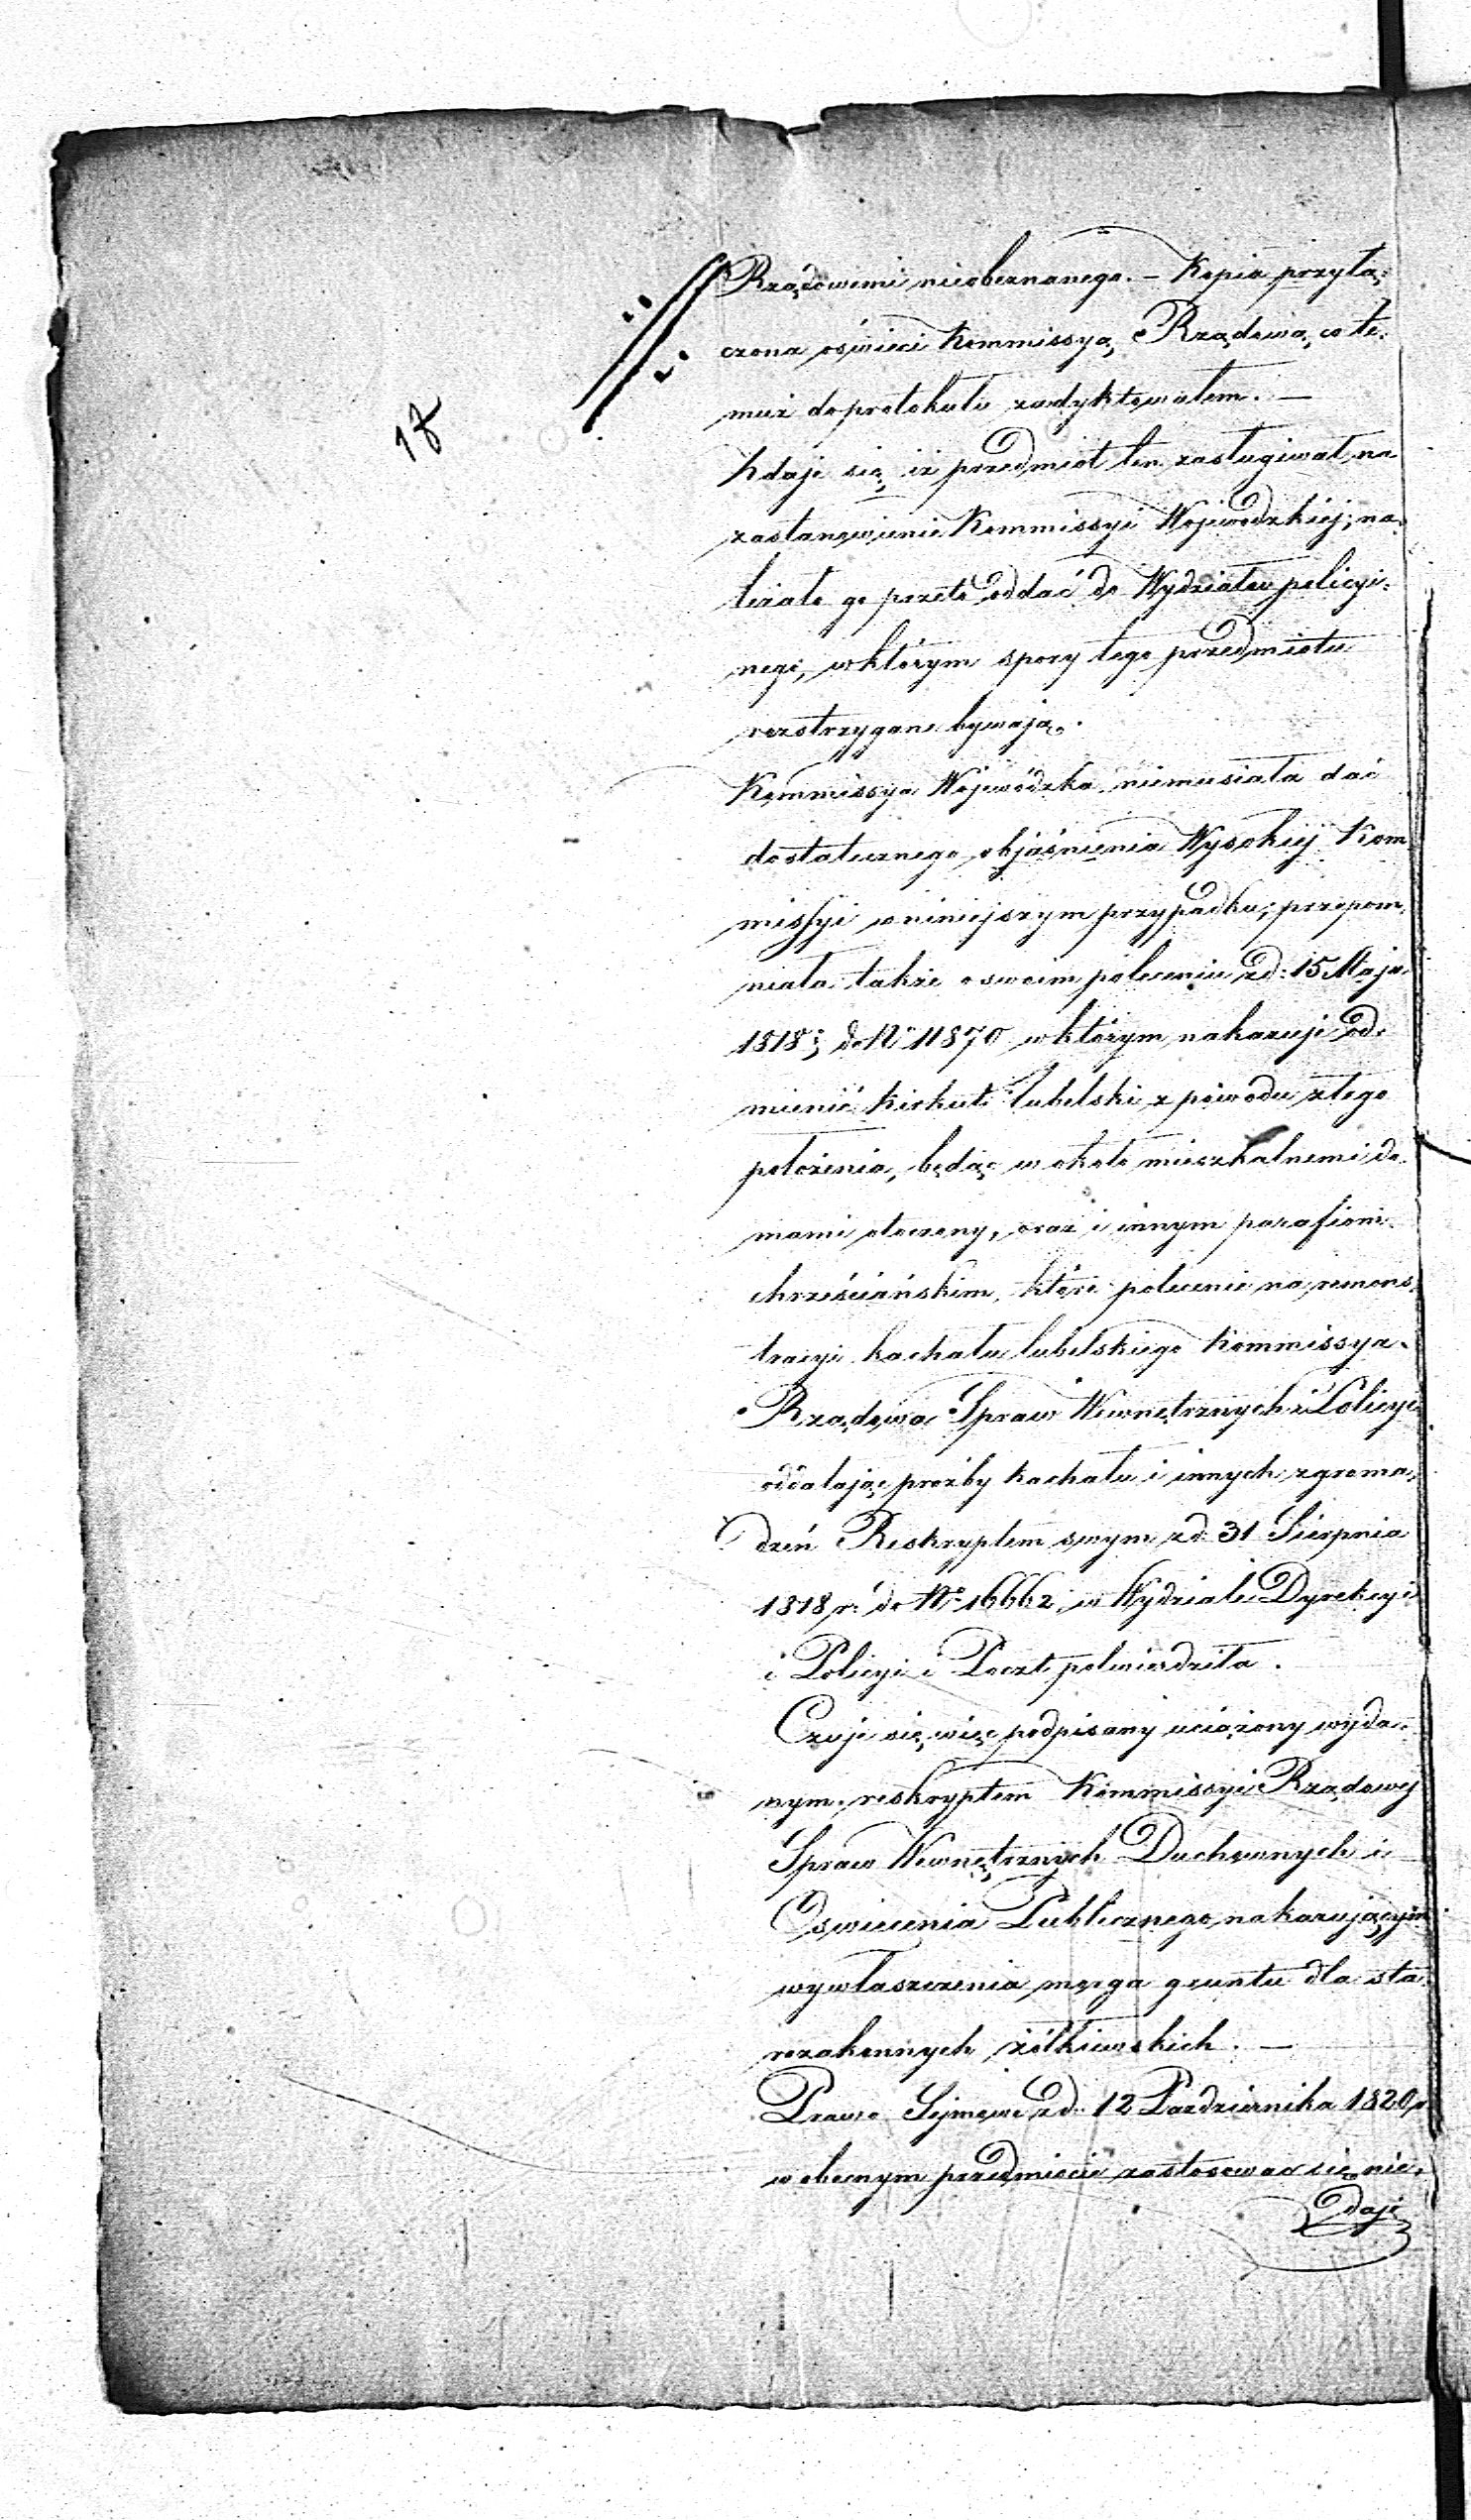 Rządowemi nieobeznanego. – Kopia przyłą:
czona oświeci Kommissyą Rządową, co te.
muż do protokułu zadyktowałem. –
18
Zdaje się, iż przedmiot ten zasługiwał na
zastanowienie Kommissyi Wojewodzkiej; na:
leżało go przeto oddać do Wydziału policyi:
nego, w którym spory tego przedmiotu
rozstrzygane bywają.
Kommissya Wojewódzka niemusiała dać
dostatecznego objaśnienia Wysokiej Kom
missyi w niniejszym przypadku; przepom.
niała także o swoim poleceniu z d: 15 Maja
1818 r; do No 11870 w którym nakazuje od.
mienić kirkut lubelski z powodu złego
położenia, będąc w około mieszkalnemi do.
mami otoczony, oraz i innym parafiom
chrześciańskim, które polecenie na remons.
tracyi kachału lubelskiego Kommissya
Rządowa Spraw Wewnętrznych i Policyi
oddalając prożby kachału i innych zgroma,
dzeń Reskryptem swym z d. 31 Sierpnia
1818 r: do No 16662 w Wydziale Dyrekcyi
i Policyi i Poczt potwierdziła.
Czuje się więc podpisany uciążony wyda.
nym reskryptem Kommissyi Rządowej
Spraw Wewnętrznych Duchownych i
Oswiecenia Publicznego, nakazującym
wywłaszczenia morga gruntu dla sta.
rozakonnych żółkiewskich. –
Prawo Sejmowe z d. 12 Pazdziernika 1820 r
w obecnym przedmiocie zastosować się nie.
daje